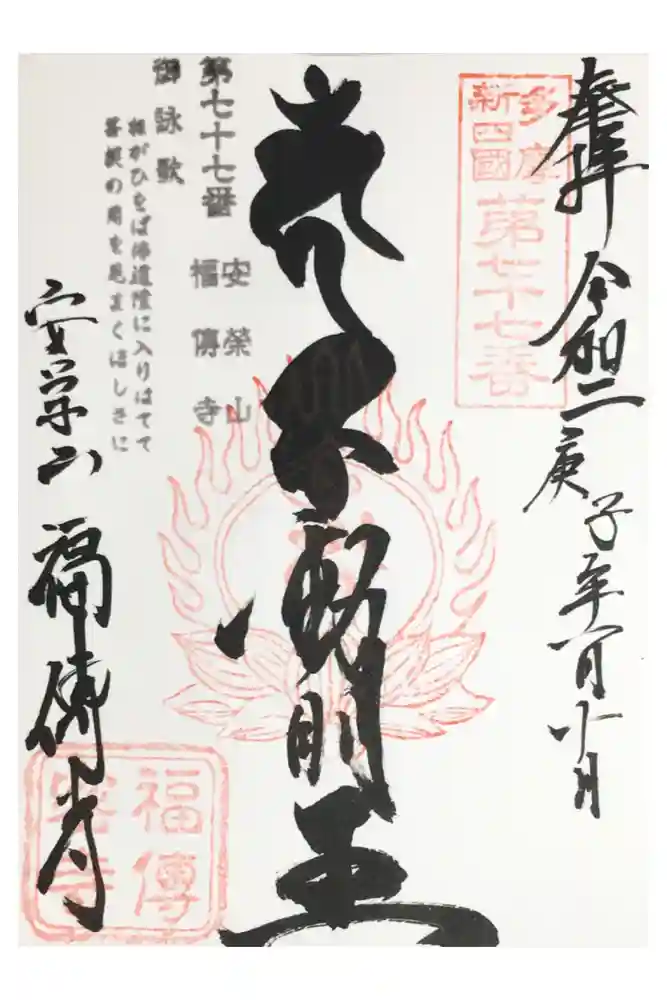 奉拝
令和二庚子年
多摩
新四國
第七十七番
不動明王
第七十七番
安榮山
福傳寺
御詠歌
がひをば佛道に入りはてて
菩提の月を見まくほしさに
安栄山
福傳寺
福傳
密寺